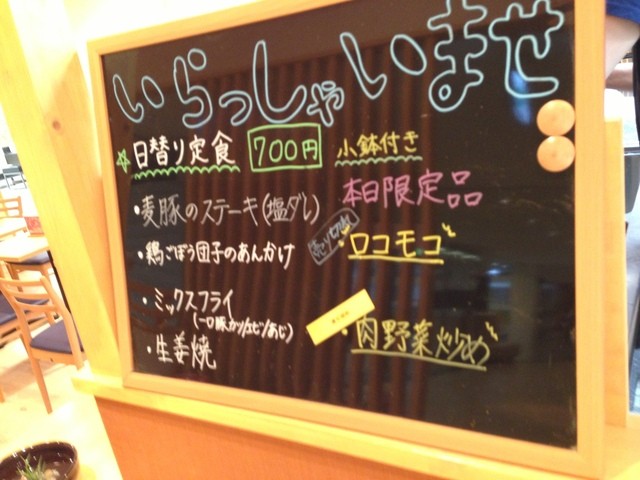 いらっしゃいませ
☆日替り定食 700円 小鉢付き
・麦豚のステーキ(塩ダレ)
・鶏ごぼう団子のあんかけ
・ミックスフライ
(一口豚カツ/エビ/あじ)
・生姜焼
本日限定品
売り切れ
・ロコモコ
・肉野菜炒め